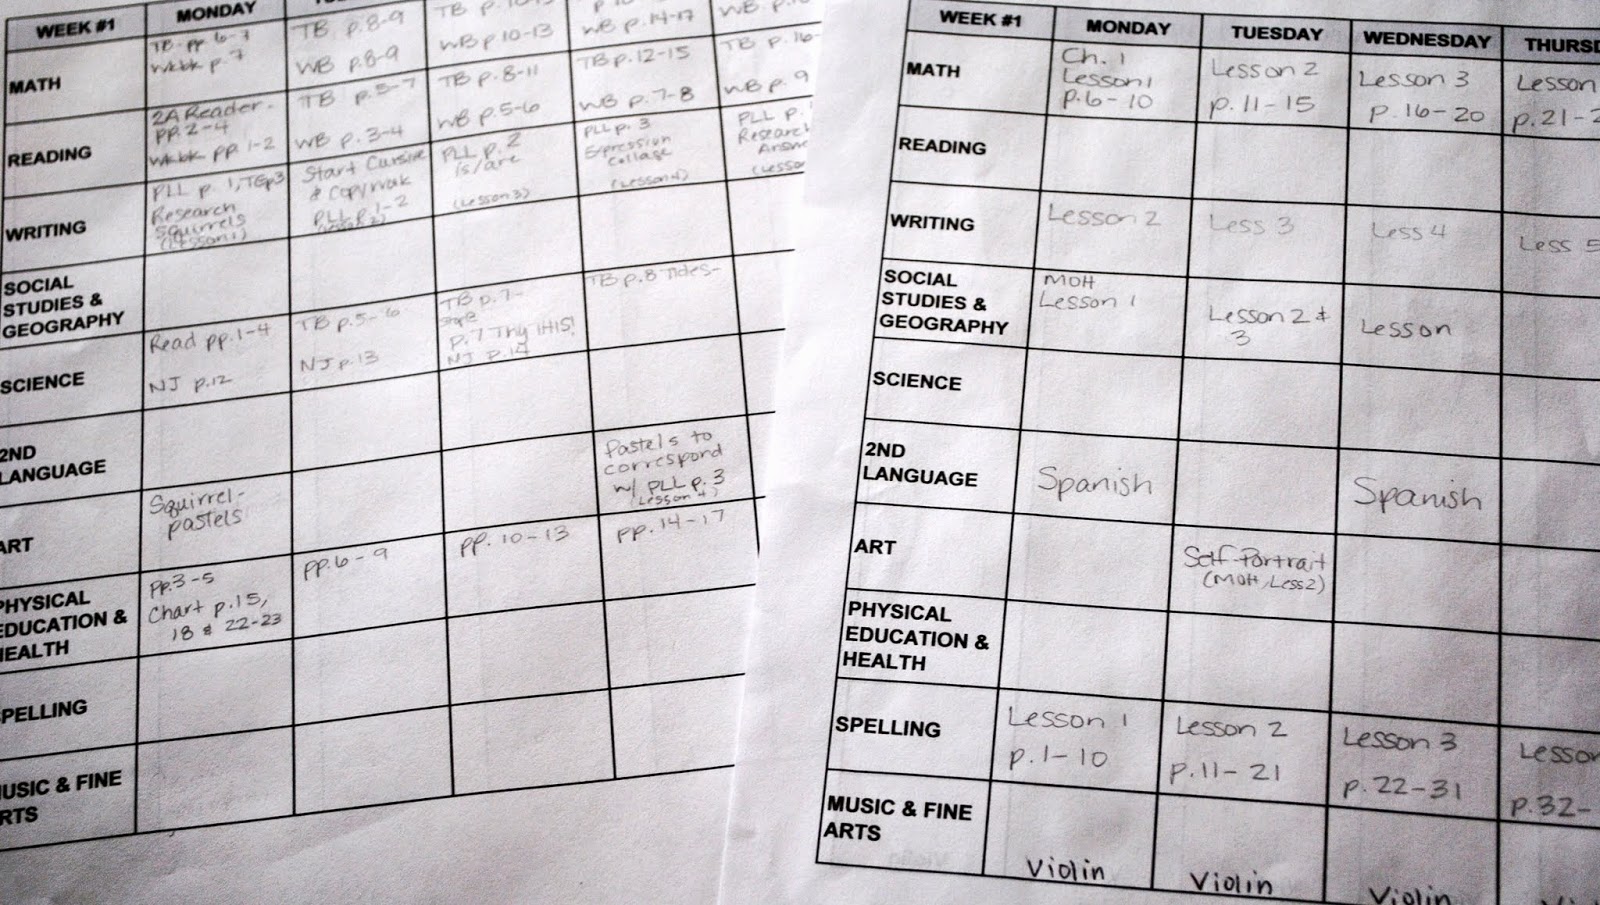 WEEK #1
MONDAY
MATH
TB pp. 6-7
wkbk p. 7
TB p.8-9
WB p.8-9
WB p 10-13
WB p.14-17
READING
2A Reader-
pp. 2-4
wkbk pp. 1-2
TB p.5-7
WB p. 3-4
TB p.8-11
WB p.5-6
TB p.12-15
WB p. 7-8
TB p. 16-
WB p. 9
WRITING
PLL p. 1, TG p3
Research
Squirrels
(Lesson 1)
Start Cursive
& Copywork
PLL p. 1-2
PLL p. 2
is/are
(Lesson 3)
PLL p. 3
Expression
Collage
(Lesson 4)
PLL p.
Research
(Lesso
SOCIAL
STUDIES &
GEOGRAPHY
SCIENCE
Read pp. 1-4
NJ p.12
TB p.5-6
NJ p.13
TB p. 7-
p.7 Try THIS!
NJ p. 14
TB p.8 Tides-
2ND
LANGUAGE
ART
Squirrel-
pastels
Pastels to
correspond
w/ PLL p. 3
(Lesson 4)
PHYSICAL
EDUCATION &
HEALTH
pp.3-5
Chart p.15,
18 & 22-23
pp.6-9
pp. 10-13
pp. 14-17
PELLING
USIC & FINE
RTS
WEEK #1
MONDAY
TUESDAY
WEDNESDAY
THURSD
MATH
Ch. 1
Lesson 1
p.6-10
Lesson 2
p.11-15
Lesson 3
p.16-20
Lesson
p.21-2
READING
WRITING
Lesson 2
Less 3
Less 4
Less 5
SOCIAL
STUDIES &
GEOGRAPHY
MOH
Lesson 1
Lesson 2 &
3
Lesson
SCIENCE
2ND
LANGUAGE
Spanish
Spanish
ART
Self-Portrait
(MOH, Less2)
PHYSICAL
EDUCATION &
HEALTH
SPELLING
Lesson 1
p.1-10
Lesson 2
p.11-21
Lesson 3
p.22-31
Lesson
p.32-
MUSIC & FINE
ARTS
Violin
Violin
Violin